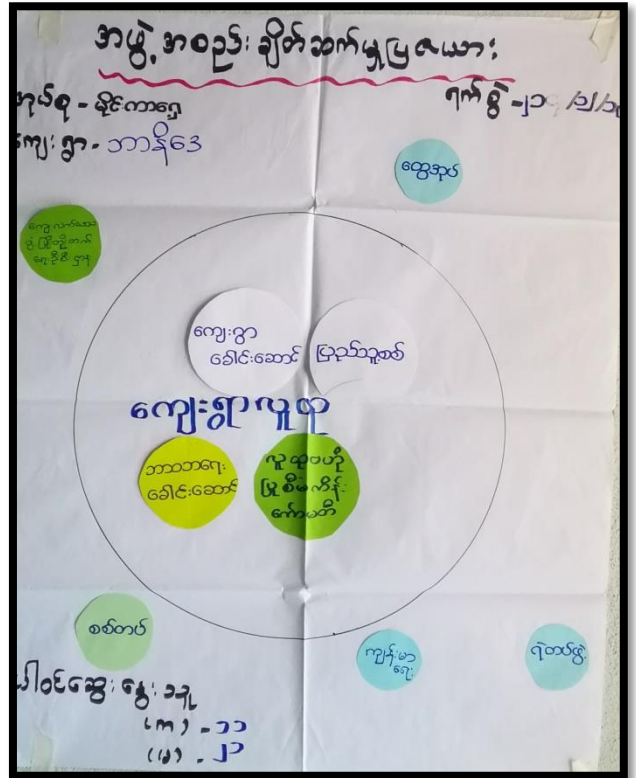 အဖွဲ့အစည်းချိတ်ဆက်မှုပြဇယား
အုပ်စု - မိုင်းကာရှေ
ရက်စွဲ -၂၁ /၁၂/၁၉
ကျေးရွာ - ဘာနိဒေ
ထွေအုပ်
ကျေးလက်ဒေသ
ဖွံ့ဖြိုးတိုးတက်
ရေးဦးစီးဌာန
ကျေးရွာ
ခေါင်းဆောင်
ပြည်သူ့စစ်
ကျေးရွာလူထု
ဘာသာရေး
ခေါင်းဆောင်
လူထုဗဟို
ပြုစီမံကိန်း
ကော်မတီ
စစ်တပ်
ကျန်းမာ
ရေး
ရဲတပ်ဖွဲ့
ပါဝင်ဆွေးနွေးသူ
(က) - ၁၁
(မ) - ၂၁